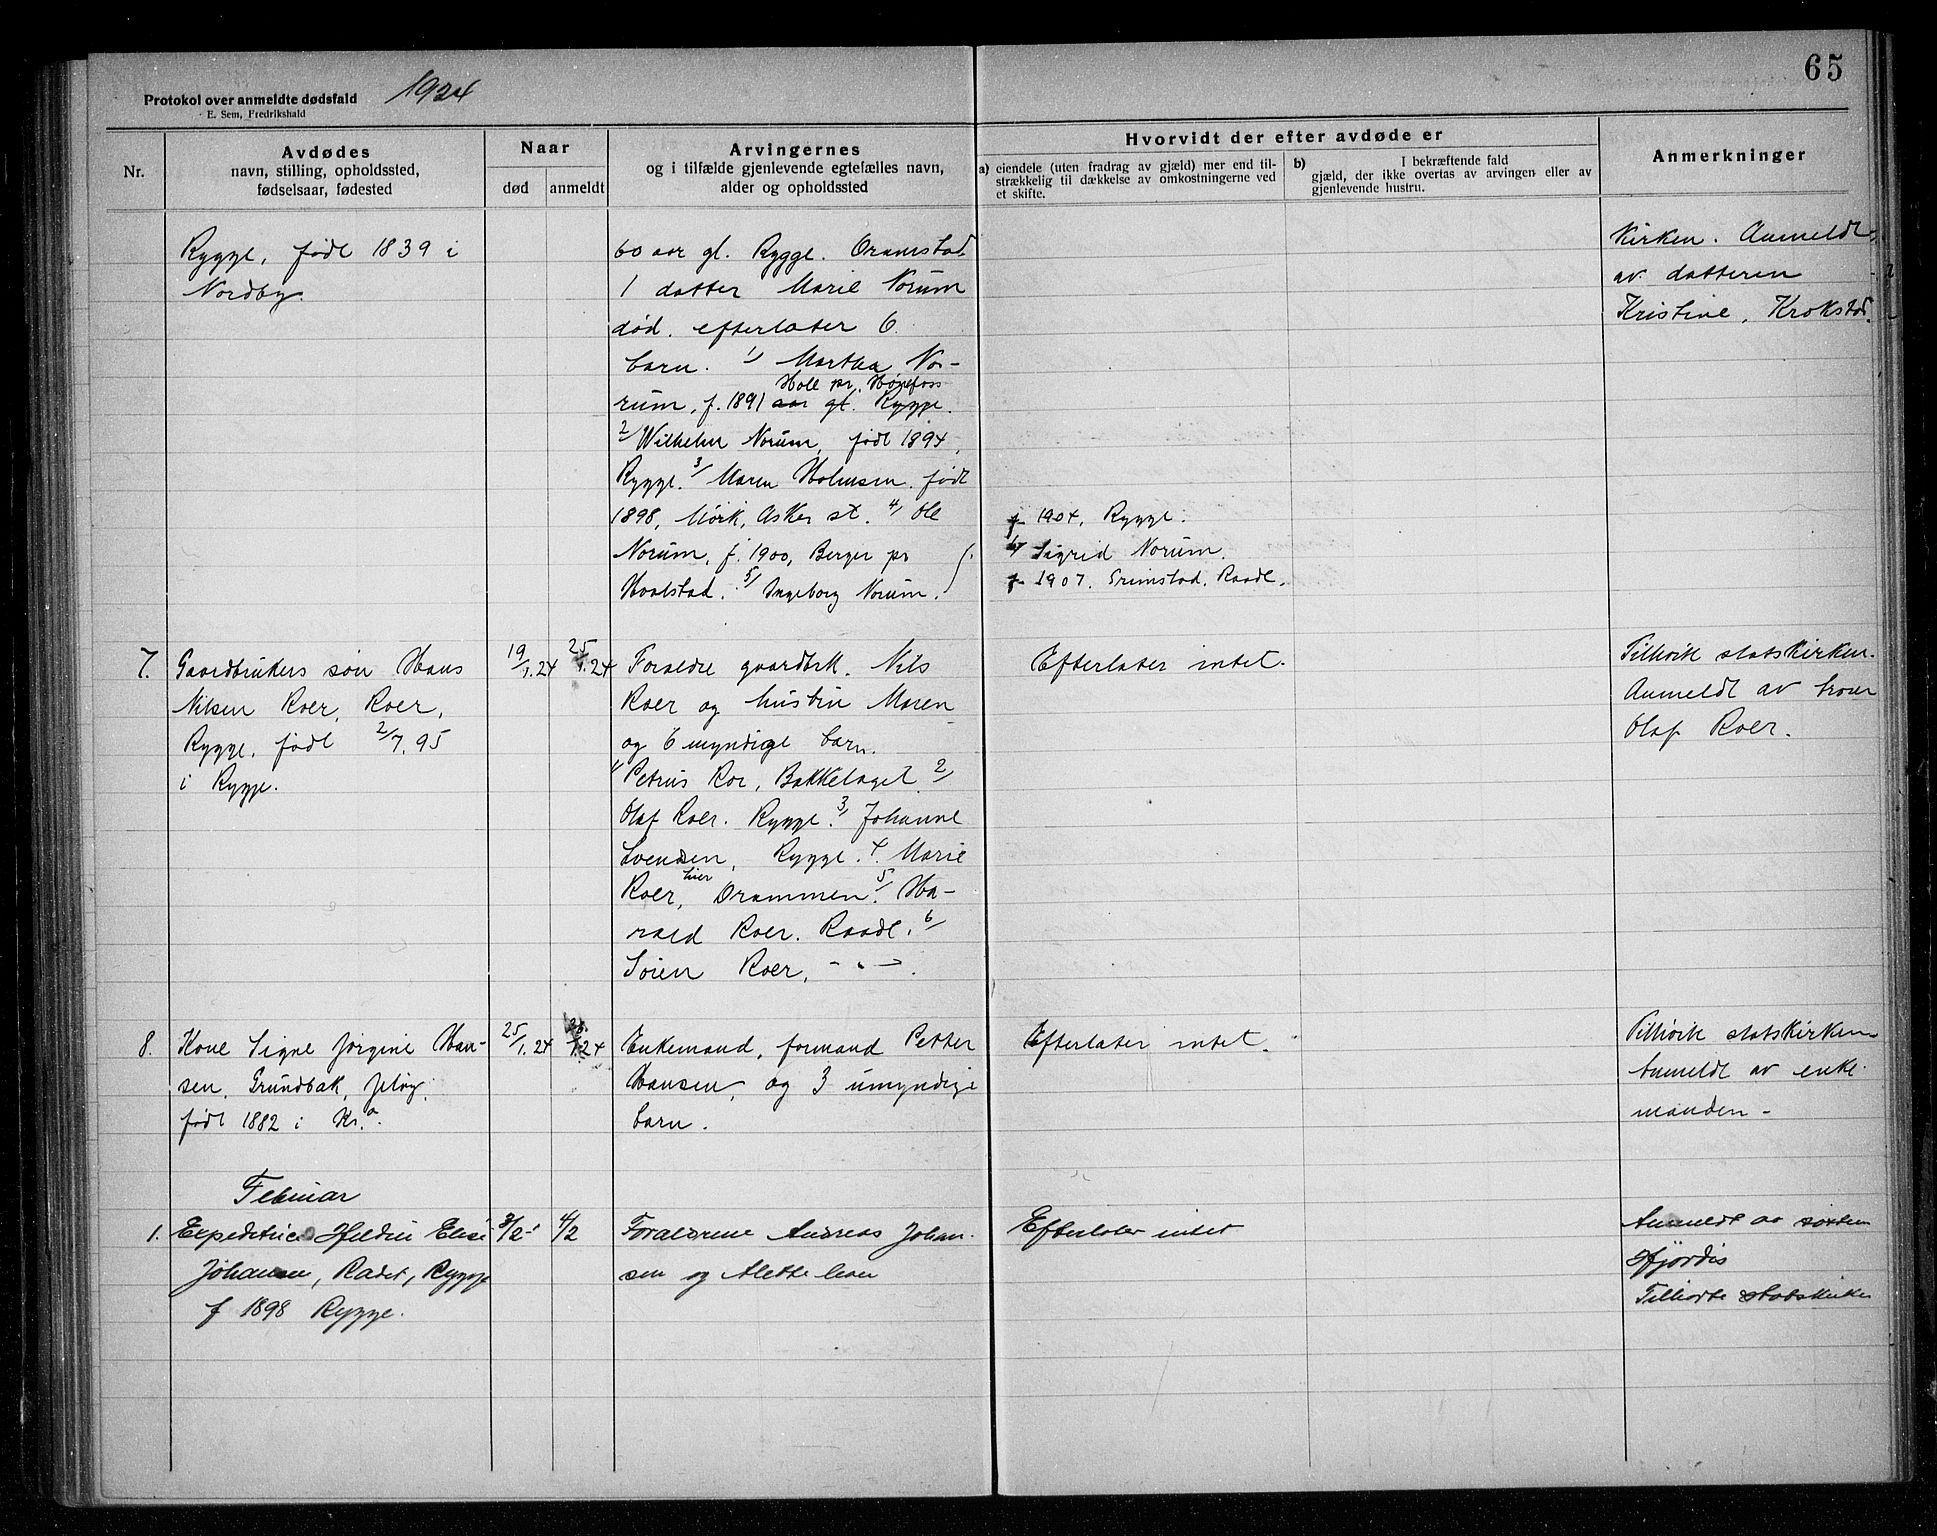 65
Protokol over anmeldte dødsfald 1924
E. Sem, Fredrikshald
Nr.
Avdødes
navn, stilling, opholdssted,
fødselsaar, fødested
Naar
død
anmeldt
Arvingernes
og i tilfælde gjenlevende egtefælles navn,
alder og opholdssted
Hvorvidt der efter avdøde er
a) eiendele (uten fradrag av gjæld) mer end til-
strækkelig til dækkelse av omkostningerne ved
et skifte.
b) I bekræftende fald
gjæld, der ikke overtas av arvingen eller av
gjenlevende hustru.
Anmerkninger
Rygge, født 1839 i
Nordby.
60 aar gl. Rygge.
1 datter Marie Norum
død. efterlater 6
barn. 1/ Martha No-
Hole pr. Hønefoss
rum, f. 1891 aar gl. Rygge.
2/ Wilhelm Norum, født 1894,
Rygge. 3/ Maren Holmsen, født
1898, Mørk, Asker st. 4/ Ole
Norum, f. 1900, Berger pr
Hoolstad. 5/ Ingeborg Norum.
f. 1904, Rygge.
6/ Sigrid Norum.
f. 1907. Grimstad, Raade.
Kirken. Anmeldt
av datteren
Kristine, Krokstad.
7.
Gaardbrukers søn Hans
Nilsen Roer, Roer,
Rygge, født 2/7. 95
i Rygge.
19/1.24
25/1.24
Forældre gaardbrk. Nils
Roer og hustru Maren
og 6 myndige barn.
1/ Petrus Roe, Bækkelaget 2/
Olaf Roer. Rygge. 3/ Johanne
Svendsen, Rygge. 4. Marie
lier
Roer, Drammen. 5/ Ha-
rald Roer. Raade. 6/
Søren Roer, - " - .
Efterlater intet.
Tilhørte statskirken.
Anmeldt av bror
Olaf Roer.
8.
Kone Signe Jørgine Han-
sen, Grundbak, Jeløy,
født 1882 i Kr.a.
25/1.24
28/1.24
Enkemand, formand Petter
Hansen, og 3 umyndige
barn.
Efterlater intet.
Tilhørte statskirken
Anmeldt av enke-
manden -
Februar
1.
Expeditrice Hildur Elise
Johansen, Rådet, Rygge
f 1898 Rygge.
3/2
4/2
Forældrene Andreas Johan-
sen og Alette
Efterlater intet
Anmeldt av søsteren
Hjørdis
Tilhørte statskirken